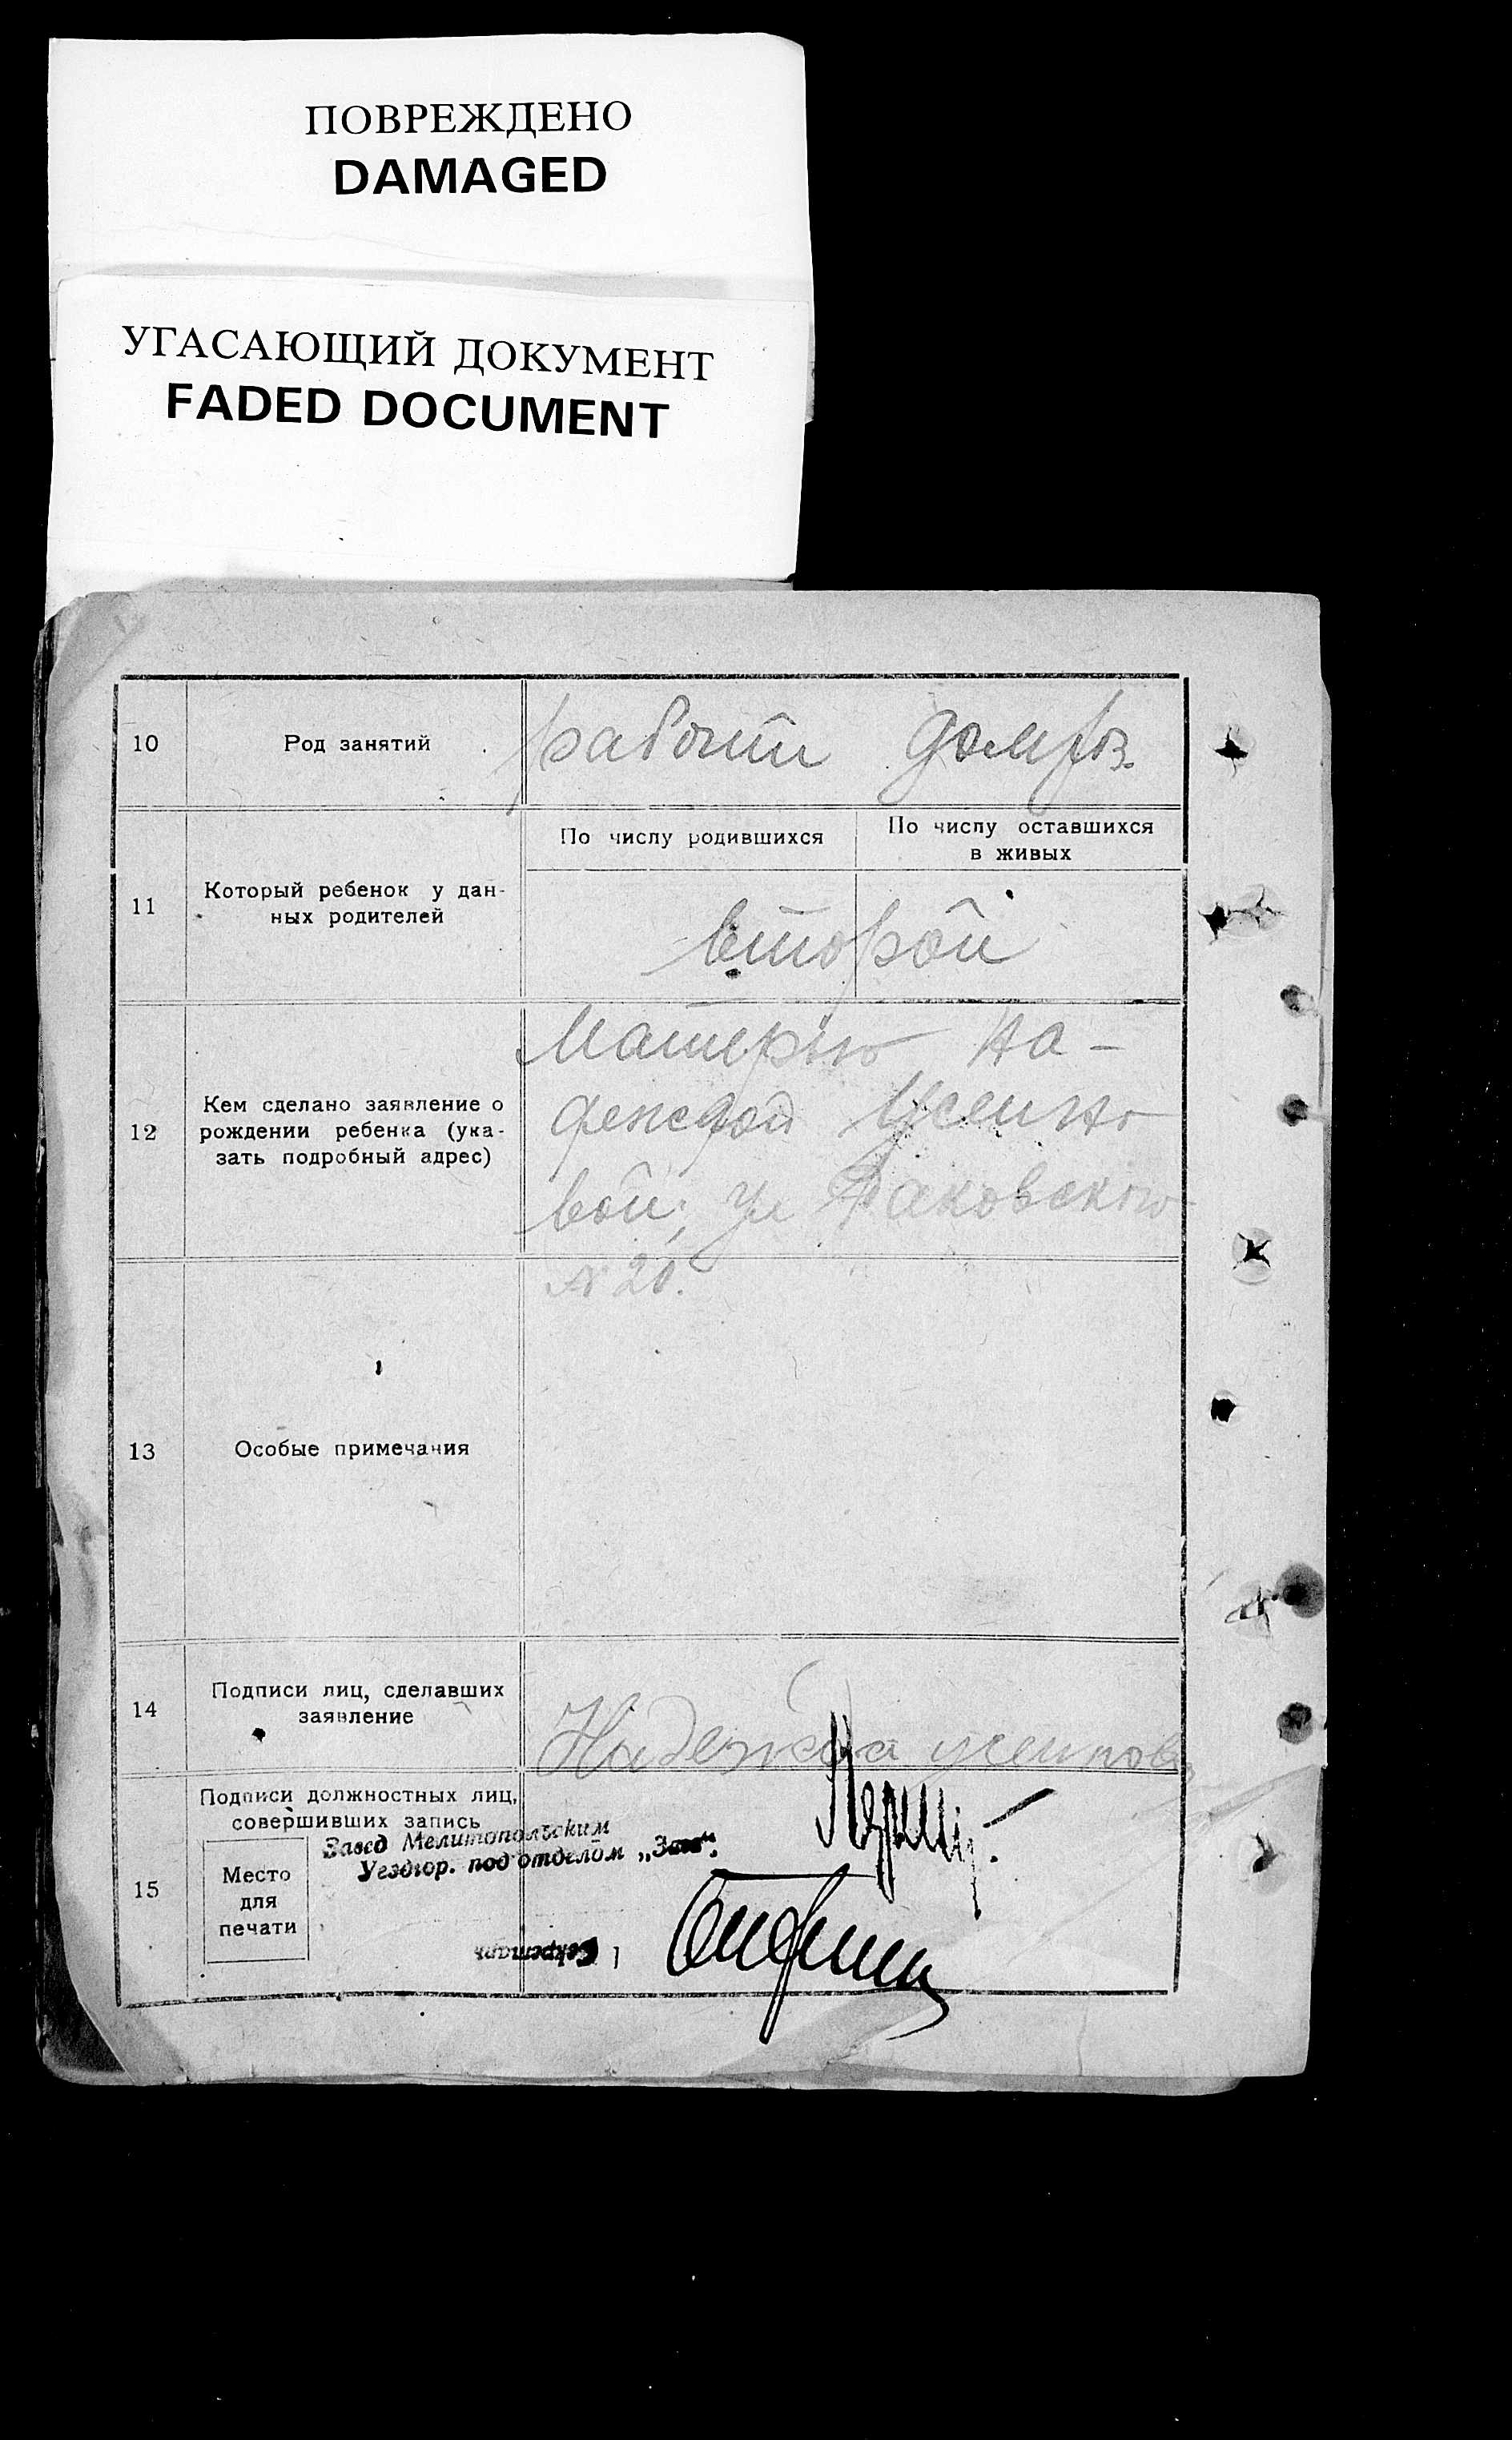 ПОВРЕЖДЕНО
DAMAGED
УГАСАЮЩИЙ ДОКУМЕНТ
FADED DOCUMENT
10
Род занятий
рабочий домхоз.
11
Который ребенок у дан-
ных родителей
По числу родившихся
По числу оставшихся
в живых
второй
12
Кем сделано заявление о
рождении ребенка (ука-
зать подробный адрес)
Матерью На-
деждой
вой, ул Раковского
N 20.
13
Особые примечания
14
Подписи лиц, сделавших
заявление
Надежда
15
Подписи должностных лиц,
совершивших запись
Место
для
печати
Завед Мелитопольским
Уездгор. подотделом „Загс“.
Секретарь